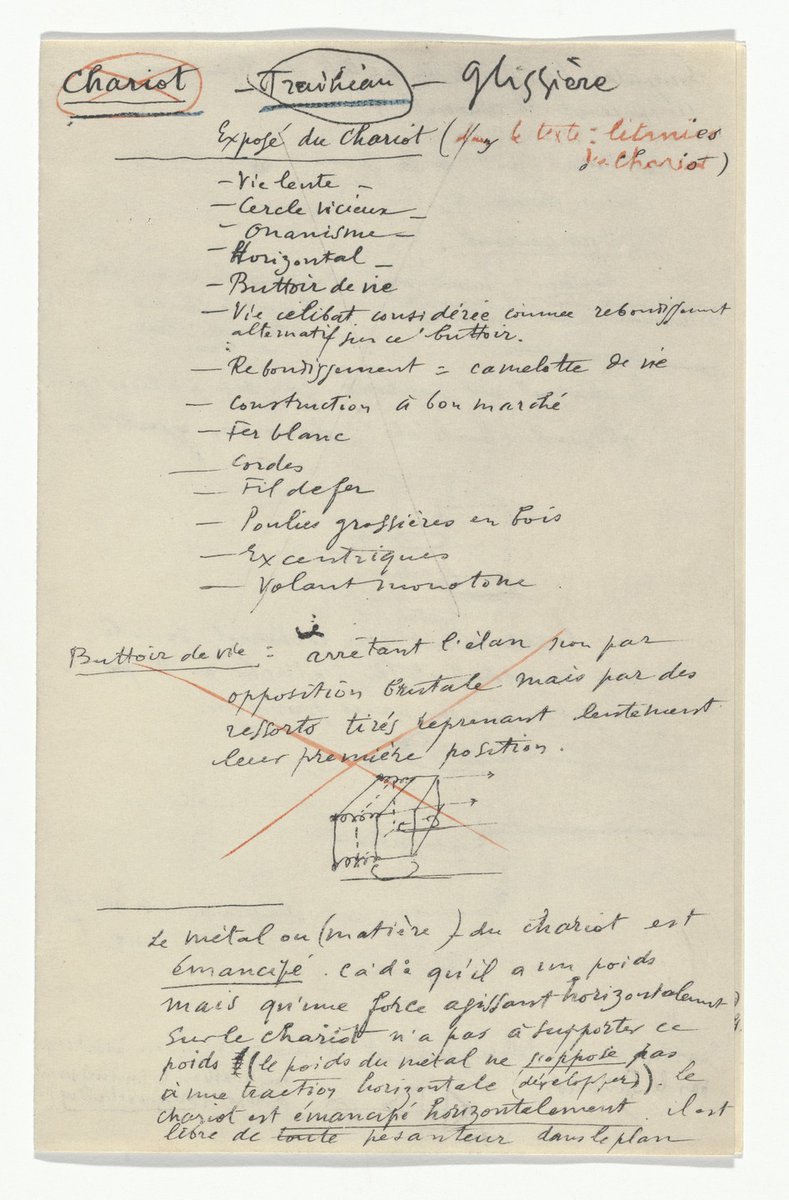 Chariot – Traîneau – glissière
Exposé du Chariot (dans le texte : litanies
du Chariot)
– Vie lente –
– Cercle vicieux –
– Onanisme –
– Horizontal –
– Buttoir de vie
– Vie célibat considérée comme rebondissement
alternatif sur ce buttoir.
– Rebondissement = camelotte de vie
– Construction à bon marché
– Fer blanc
– Cordes
– Fil de fer
– Poulies grossières en bois
– Excentriques
– Volant monotone
Buttoir de vie = arrêtant l'élan non par
opposition brutale mais par des
ressorts tirés reprenant lentement
leur première position.
Le métal ou (matière) du chariot est
émancipé. Càd^ qu'il a un poids
mais qu'une force agissant horizontalement
sur le chariot n'a pas à supporter ce
poids (le poids du métal ne s'oppose pas
à une traction horizontale (développer)). le
chariot est émancipé horizontalement. il est
libre de toute pesanteur dans le plan